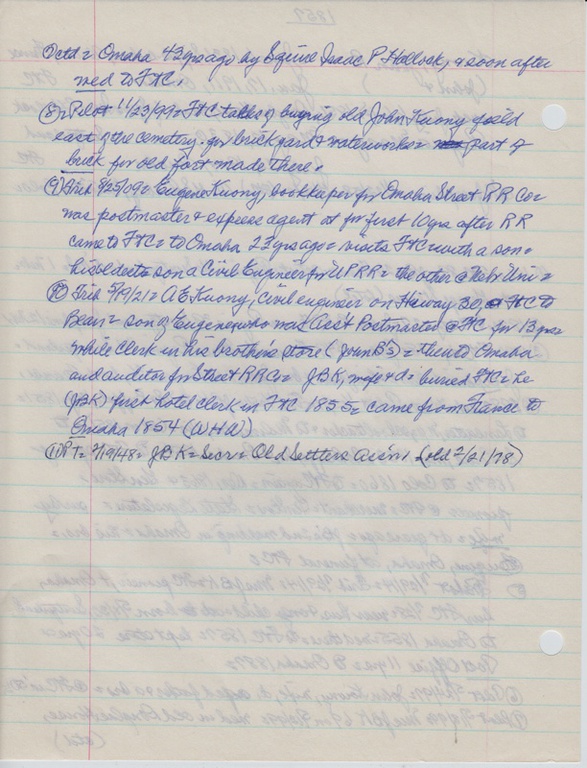 (7) ctd = Omaha 42 yrs ago by Squire Isaac P Hallock, & soon after
mvd to FtC.
(8) Pilot 11/23/99 = FtC talks of buying old John Kuony field
east of the cemetery for brick yard & waterworks = part of
brick for old fort made there.
(9) Trib 8/25/09 = Eugene Kuony, bookkeeper for Omaha Street RR Co =
was postmaster & express agent at for first 10 yrs after RR
came to FtC = to Omaha 23 yrs ago = visits FtC with a son =
his oldest son a Civil Engineer for UPRR = the other @ Nebr Uni =
(10) Trib 5/19/21 = A E Kuony, civil engineer on Hiway 30 FtC to
= son of Eugene who was Ass't Postmaster @ FtC for 13 yrs
while clerk in his brother's store (John B's) = then to Omaha
and auditor for Street RR Co = JBK, wife & d = buried FtC = he
(JBK) first hotel clerk in FtC 1855 = came from France to
Omaha 1854 (WHW)
(11) PT = 2/19/48 = JBK = Secr = Old Settlers Ass'n (old 2/21/78)